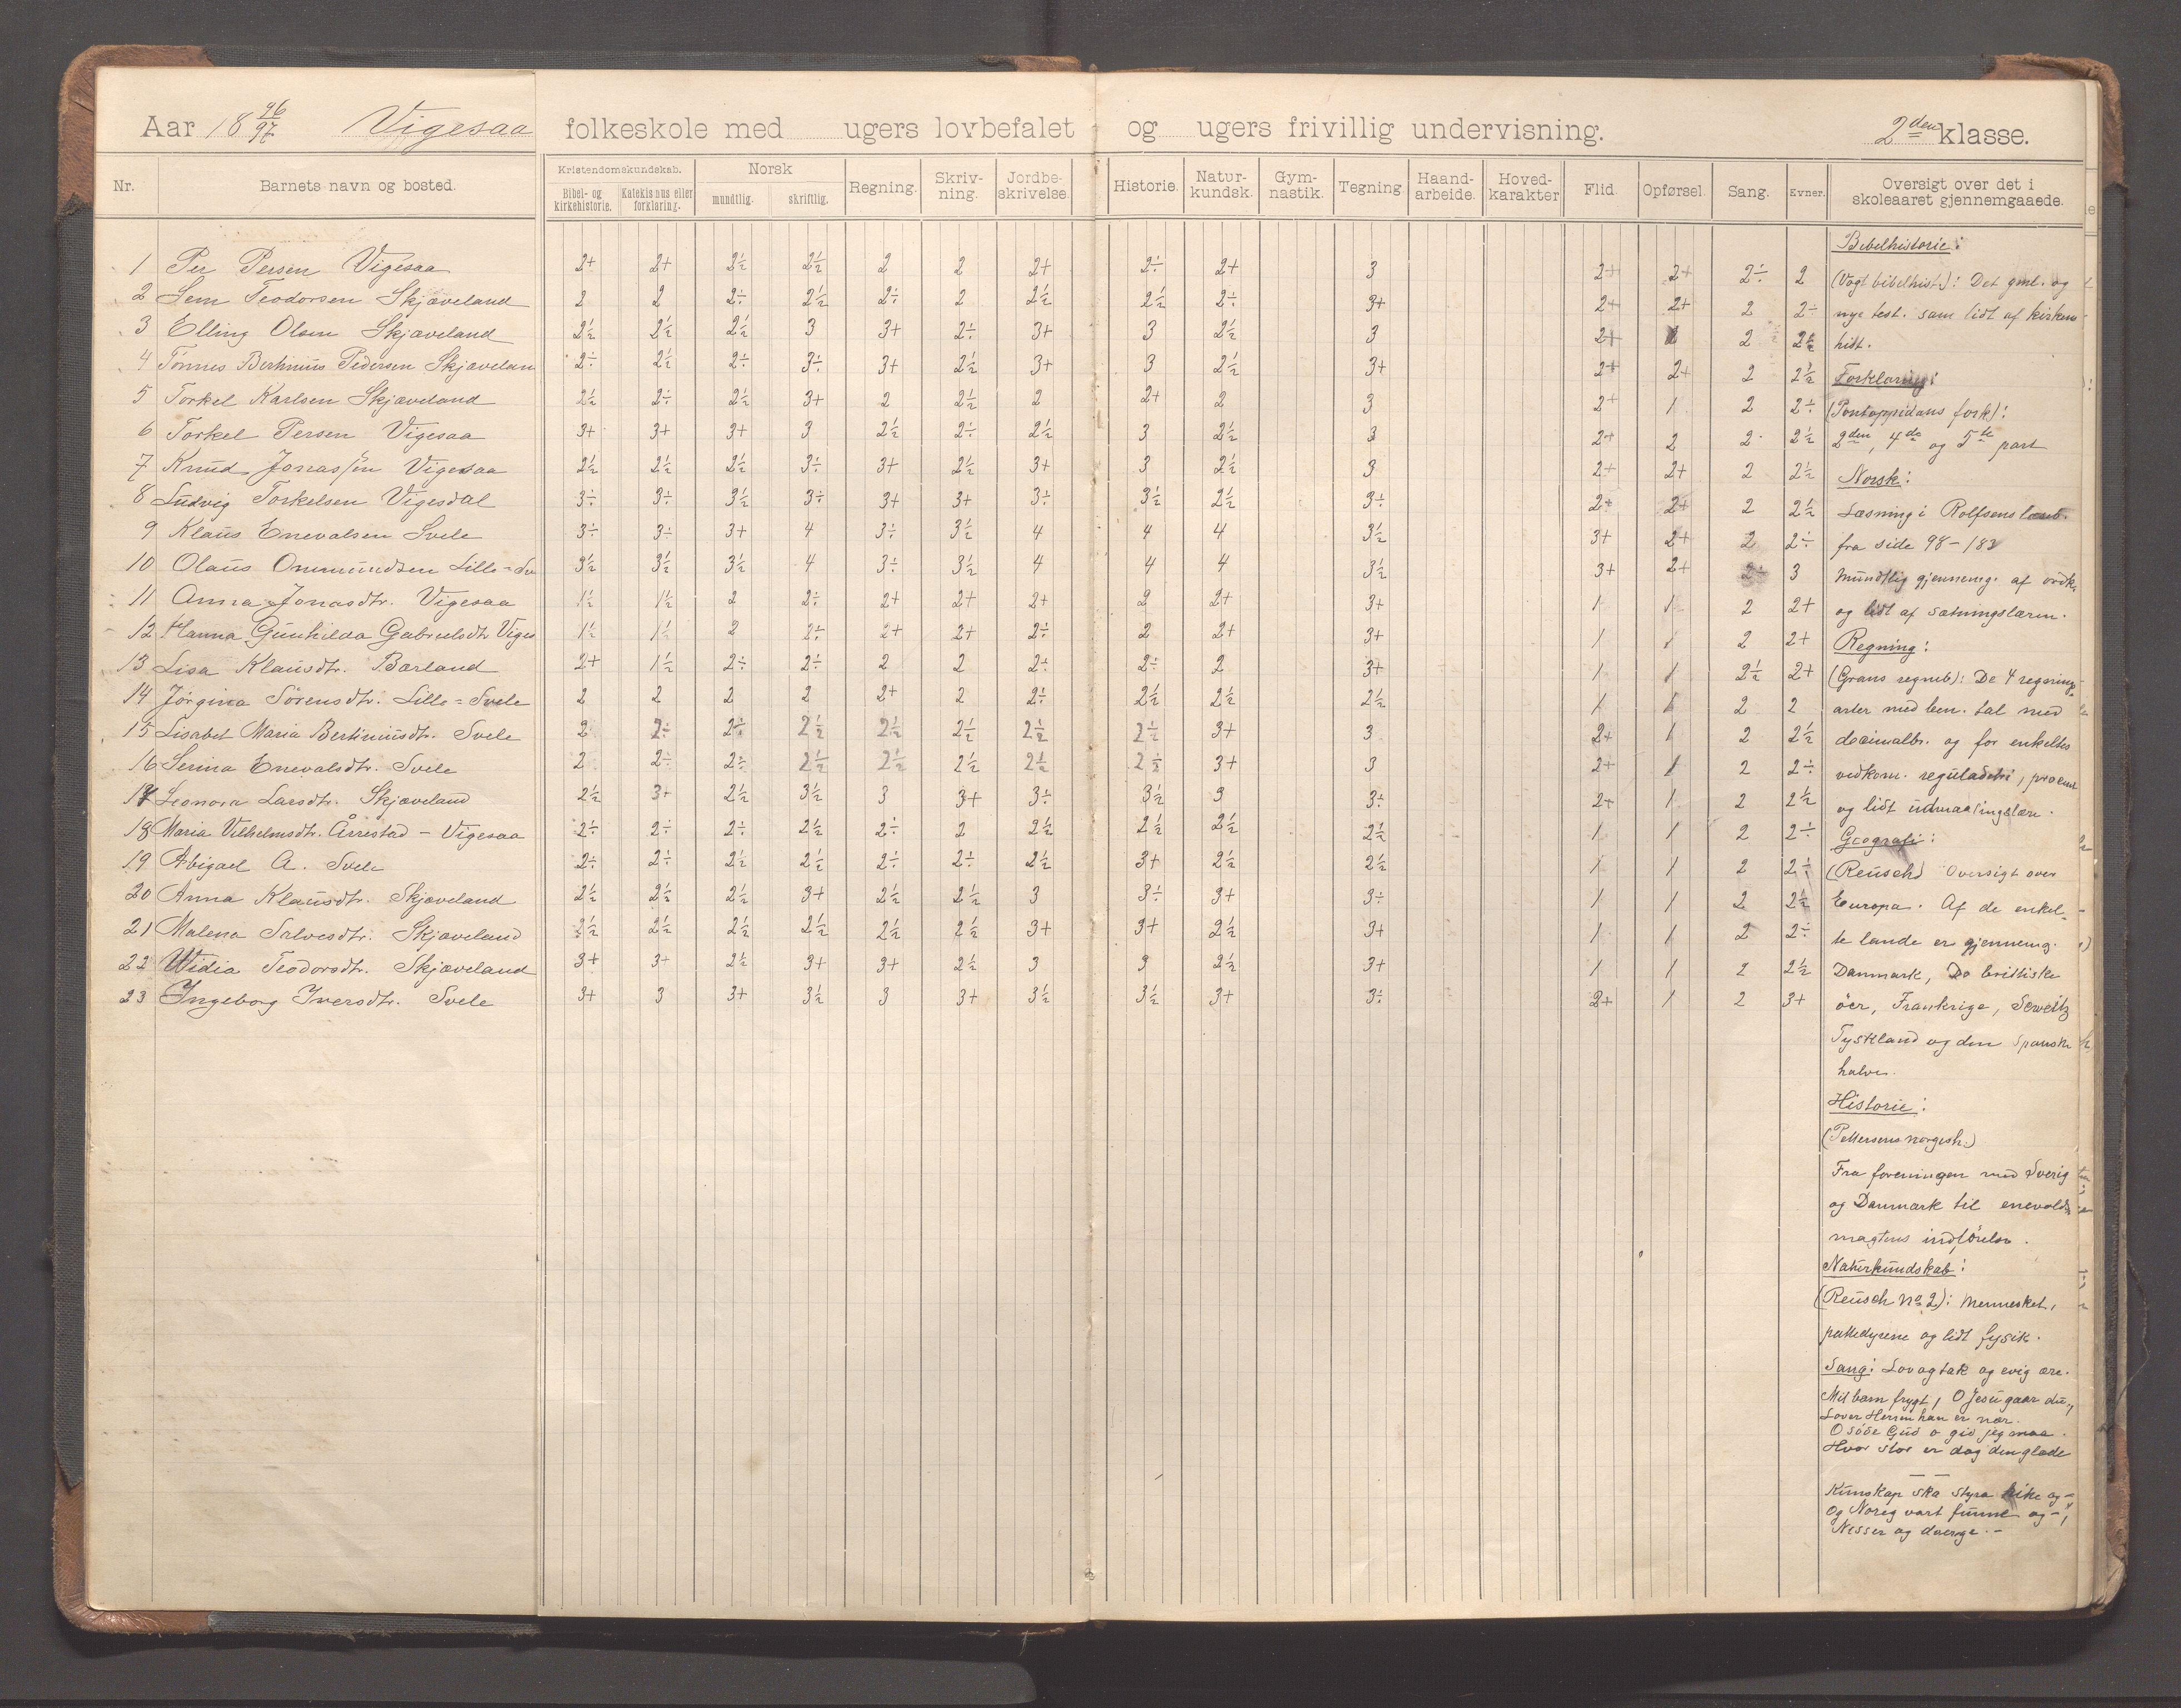 Aar 18 96/97 Vigesaa folkeskole med ugers lovbefalet og ugers frivillig undervisning. 2den klasse.
Nr. Barnets navn og bosted. Kristendomskundskab. Bibel- og kirkehistorie. Katekismus eller forklaring. Norsk mundtlig. skriftlig. Regning. Skriv-ning. Jordbe-skrivelse. Historie. Natur-kundsk. Gym-nastik. Tegning. Haand-arbeide. Hoved-karakter Flid. Opførsel. Sang. Evner. Oversigt over det i skoleaaret gjennemgaaede.
1 Per Persen Vigesaa 2+ 2+ 2½ 2½ 2 2 2+ 2÷ 2+ 3 2+ 2+ 2÷ 2
2 Sem Teodorsen Skjæveland 2 2 2÷ 2½ 2÷ 2 2½ 2½ 2÷ 3+ 2+ 2+ 2 2÷
3 Elling Olsen Skjæveland 2½ 2½ 2½ 3 3+ 2÷ 3+ 3 2½ 3 2+ 2 2½
4 Tønnes Bertinius Pedersen Skjævelan 2÷ 2½ 2÷ 3÷ 3+ 2½ 3+ 3 2½ 3+ 2+ 2+ 2 2½
5 Torkel Karlsen Skjæveland 2½ 2÷ 2½ 3+ 2 2½ 2 2+ 2 3 2+ 1 2 2÷
6 Torkel Persen Vigesaa 3+ 3+ 3+ 3 2½ 2÷ 2½ 3 2½ 3 2+ 2 2 2½
7 Knud Jonassen Vigesaa 2½ 2½ 2½ 3÷ 3+ 2½ 3+ 3 2½ 3 2+ 2+ 2 2½
8 Ludvig Torkelsen Vigesdal 3÷ 3÷ 3½ 3÷ 3+ 3+ 3÷ 3½ 2½ 3÷ 2+ 2+ 2 2½
9 Klaus Enevalsen Svele 3÷ 3÷ 3+ 4 3÷ 3½ 4 4 4 3½ 3+ 2+ 2 2÷
10 Olaus Ommundsen Lille-Sv 3½ 3½ 3½ 4 3÷ 3½ 4 4 4 3½ 3+ 2+ 2÷ 3
11 Anna Jonasdtr. Vigesaa 1½ 1½ 2 2÷ 2+ 2+ 2+ 2 2+ 3+ 1 1 2 2+
12 Hanna Gunhilda Gabrielsdtr Viges 1½ 1½ 2 2÷ 2+ 2+ 2÷ 2 2+ 3+ 1 1 2 2+
13 Lisa Klausdtr. Børland 2+ 1½ 2÷ 2÷ 2 2 2÷ 2÷ 2 3+ 1 1 2½ 2+
14 Jørgina Sørensdtr. Lille-Svele 2 2 2 2 2+ 2 2÷ 2½ 2½ 2½ 1 1 2 2
15 Lisabet Maria Bertiniusdtr. Svele 2 2÷ 2÷ 2½ 2½ 2½ 2½ 2½ 3+ 3 2+ 1 2 2½
16 Serina Enevalsdtr. Svele 2 2÷ 2÷ 2½ 2½ 2½ 2½ 2½ 3+ 3 2+ 1 2 2÷
17 Leonora Larsdtr. Skjæveland 2½ 3+ 2½ 3½ 3 3+ 3÷ 3½ 3 3÷ 2+ 1 2 2½
18 Maria Vilhelmsdtr. Årrestad - Vigesaa 2÷ 2÷ 2÷ 2½ 2÷ 2 2½ 2½ 2½ 2½ 1 1 2 2÷
19 Abigael A. Svele 2÷ 2÷ 2½ 2½ 2÷ 2÷ 2½ 3+ 2½ 2½ 1 1 2 2÷
20 Anna Klausdtr. Skjæveland 2½ 2½ 2½ 3+ 2½ 2½ 3 3÷ 3+ 3÷ 1 1 2 2½
21 Malena Salvesdtr. Skjæveland 2½ 2½ 2½ 2½ 2½ 2½ 3+ 3+ 2½ 3+ 1 1 2 2÷
22 Widia Teodorsdtr. Skjæveland 3+ 3+ 2½ 3+ 3+ 2½ 3 3 2½ 3+ 1 1 2 2½
23 Ingeborg Iversdtr. Svele 3+ 3 3+ 3½ 3 3+ 3½ 3½ 3+ 3÷ 2+ 1 2 3+
Bibelhistorie:
(Vogt bibelhist.): Det gml. og
nye test. samt lidt af kirken
hist.
Forklaring:
(Pontoppidans fork):
2den, 4de og 5te part
Norsk:
Læsning i Rolfsens læseb.
fra side 98-183
Mundtlig gjennemg. af ordk.
og lidt af sætningslæren.
Regning:
(Grans regneb): De 4 regnings
arter med ben. tal med
decimalbr. og for enkeltes
vedkom. reguladetri, procent
og lidt udmaalingslære.
Geografi:
(Reusch) Oversigt over
Europa. Af de enkel-
te lande er gjennemg.
Danmark, De brittiske
øer, Frankrige, Schweitz
Tyskland og den Spanske
halvø.
Historie:
(Pettersens norgesh.)
Fra foreningen med Sverig
og Danmark til enevolds
magtens indførelse.
Naturkundskab:
(Reusch No 2): Mennesket,
pattedyrene og lidt fysik.
Sang: Lov og tak og evig ære.
Mit barn frygt, O Jesu gaar du,
Lover Herren han er nær.
O søde Gud o gid jeg maa.
Hvor stor er dog den glæde
Kunskap ska styra rike og -
Og Noreg vart funne og -,
Nisser og dverge. -